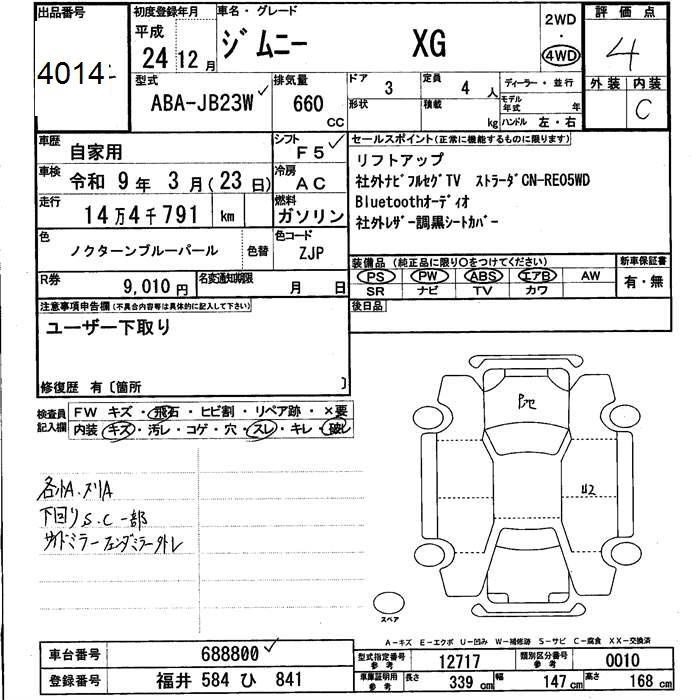 出品番号
4014
初度登録年月
平成
24 12 月
車名・グレード
ジムニー XG
2WD
・
4WD
評価点
4
外装 内装
C
型式
ABA-JB23W
排気量
660
CC
ドア
3
形状
定員
4 人
積載
kg
ディーラー・並行
モデル年式 年
ハンドル 左・右
車歴
自家用
シフト
F5
車検
令和 9 年 3 月(23 日)
冷房
AC
走行
14万4千791 km
燃料
ガソリン
色
ノクターンブルーパール
色替
色コード
ZJP
R券
9,010 円
名変通知期限
月 日
セールスポイント(正常に機能するものに限ります)
リフトアップ
社外ナビフルセグTV ストラーダCN-RE05WD
Bluetoothオーディオ
社外レザー調黒シートカバー
装備品 (純正品に限り○をつけてください)
PS PW ABS エアB AW
SR ナビ TV カワ
新車保証書
有・無
後日品
注意事項申告欄(不具合内容等は具体的に記入して下さい)
ユーザー下取り
修復歴 有〔箇所 〕
検査員記入欄
FW キズ・飛石・ヒビ割・リペア跡・×要
内装 キズ・汚レ・コゲ・穴・スレ・キレ・破レ
各小A.スリA
下回りS.C一部
サイドミラー フェンダミラー外レ
スペア
A-キズ E-エクボ U-凹み W-補修跡 S-サビ C-腐食 XX-交換済
車台番号
688800
登録番号
福井 584 ひ 841
型式指定番号
参考
12717
類別区分番号
参考
0010
車庫証明用
参考
長さ 339 cm
幅 147 cm
高さ 168 cm